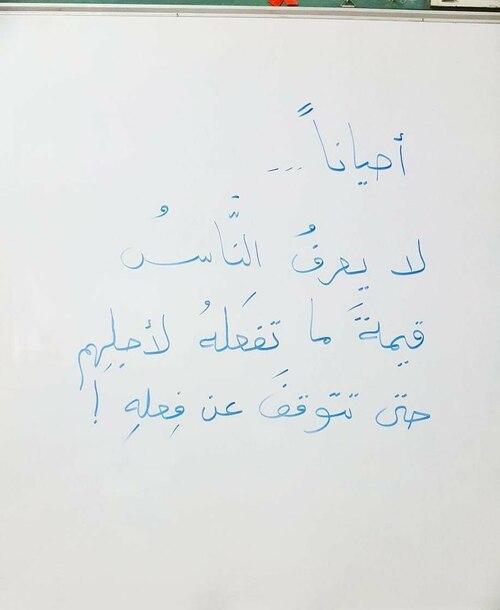 أحياناً ...
لا يعرفُ النَّاسُ
قيمةَ ما تفعَلهُ لأجلِهِم
حتى تتوّقفَ عن فِعلهِ !